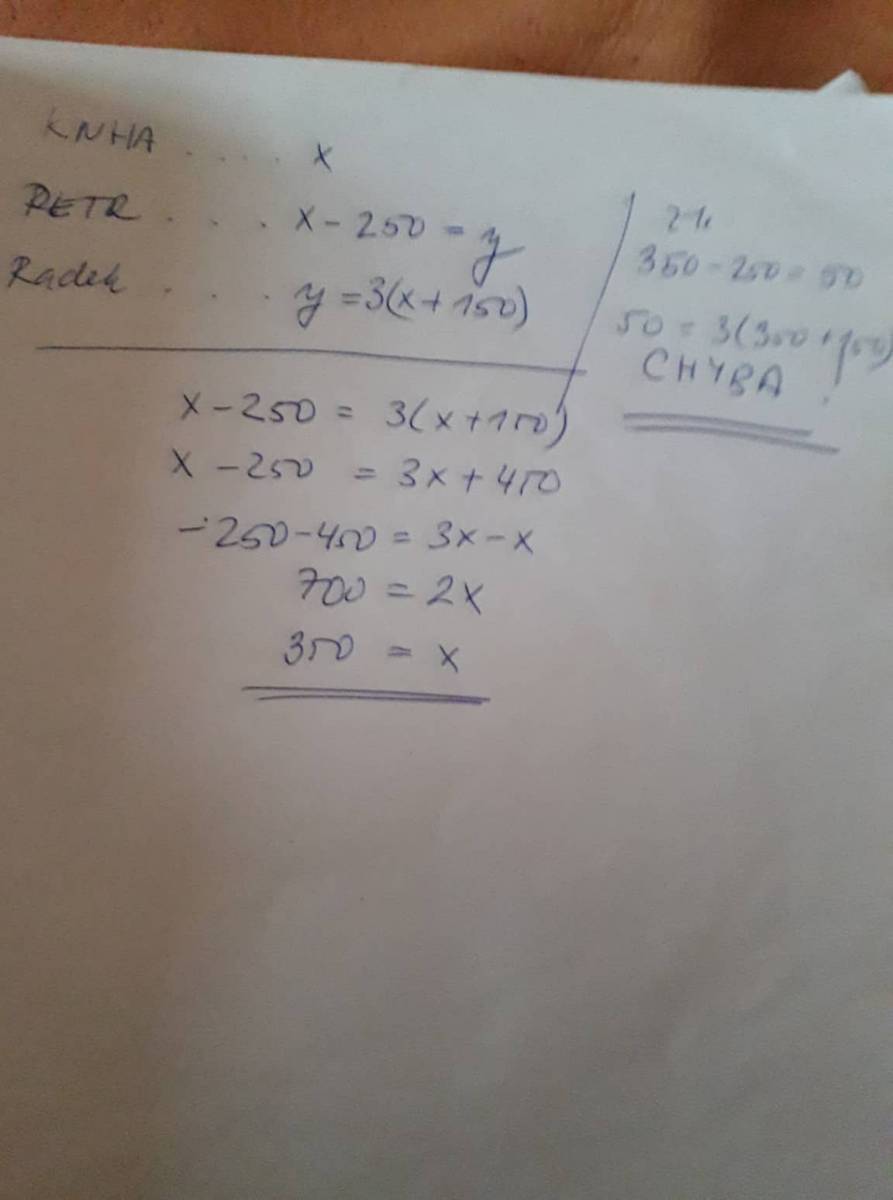 KNHA .... x
PETR ... x - 250 = y
Radek ... y = 3(x + 150)
x - 250 = 3(x + 150)
x - 250 = 3x + 450
-250 - 450 = 3x - x
700 = 2x
350 = x
350 - 250 = 50
50 = 3(350 + 150)
CHYBA !